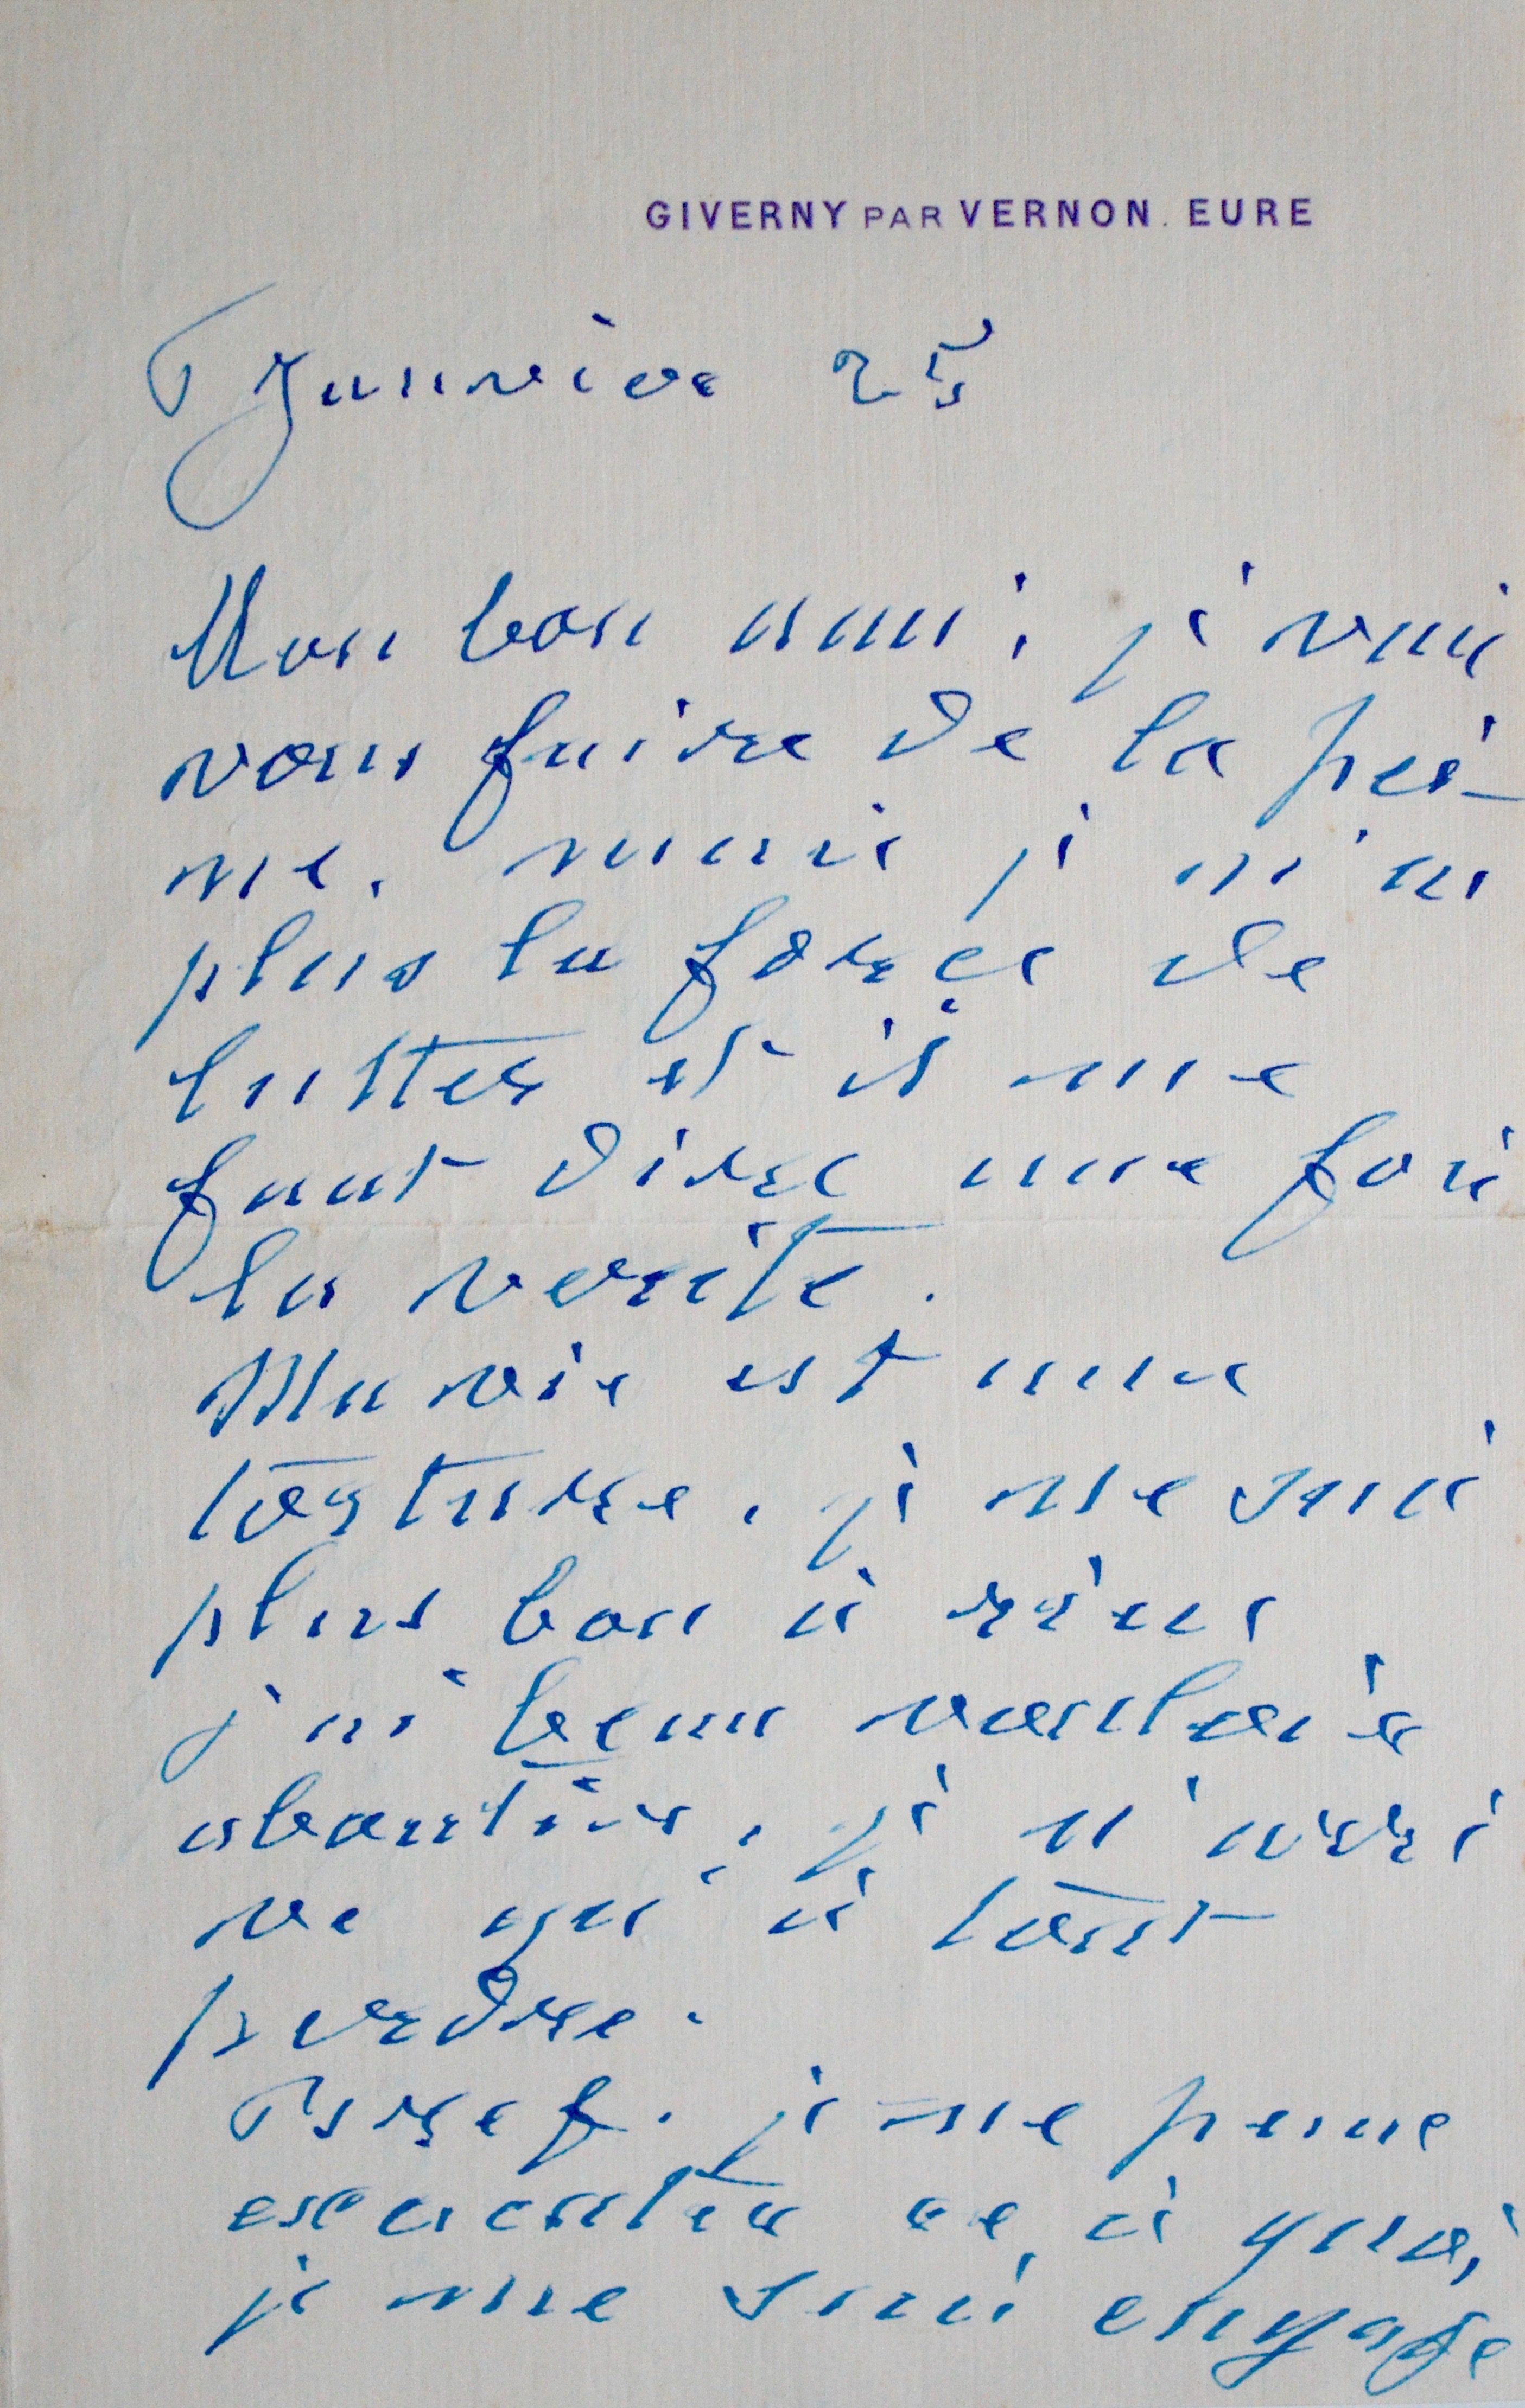 GIVERNY PAR VERNON. EURE
Janvier 25
Mon bon ami, je vais
vous faire de la pei-
ne, mais je n'ai
plus la force de
lutter et il me
faut dire une fois
la verité.
Ma vie est une
torture, je ne suis
plus bon à rien
j'ai beau vouloir
aboutir, je n'arri
ve qu'à tout
perdre.
Bref. je ne peux
executer ce à quoi
je me suis engagé